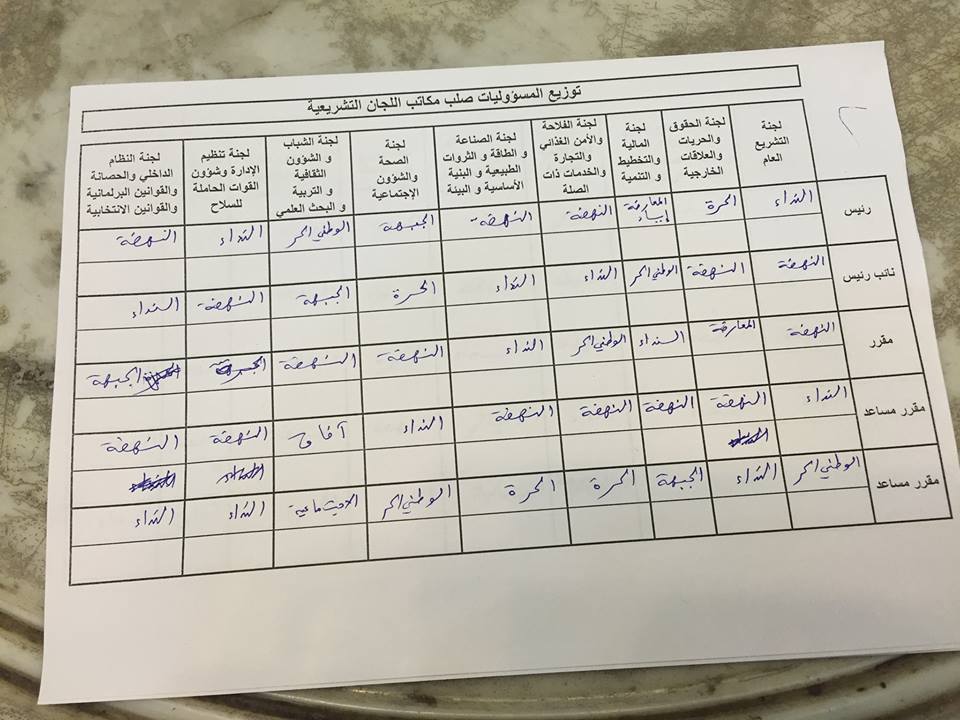 توزيع المسؤوليات صلب مكاتب اللجان التشريعية
لجنة التشريع العام
لجنة الحقوق والحريات والعلاقات الخارجية
لجنة المالية والتخطيط و التنمية
لجنة الفلاحة والأمن الغذائي والتجارة والخدمات ذات الصلة
لجنة الصناعة و الطاقة و الثروات الطبيعية و البنية الأساسية و البيئة
لجنة الصحة والشؤون الإجتماعية
لجنة الشباب و الشؤون الثقافية و التربية و البحث العلمي
لجنة تنظيم الإدارة وشؤون القوات الحاملة للسلاح
لجنة النظام الداخلي والحصانة والقوانين البرلمانية والقوانين الانتخابية
رئيس النداء الحرة المعارضة النهضة النهضة الجبهة الوطني الحر النداء النهضة
نائب رئيس النهضة النهضة الوطني الحر النداء النداء الحرة الجبهة النهضة النداء
مقرر النهضة المعارضة النداء الوطني الحر النداء النهضة النهضة الجبهة
مقرر مساعد النداء النهضة النهضة النهضة النهضة النداء آفاق النهضة النهضة
مقرر مساعد الوطني الحر النداء الجبهة الحرة الحرة الوطني الحر النداء النداء